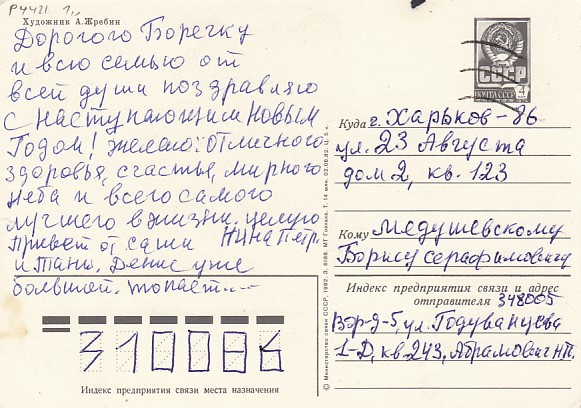 Р4421 1,-
Художник А. Жребин
Дорогого Боречку
и всю семью от
всей души поздравляю
с наступающим Новым
Годом! Желаю: отличного
здоровья, счастья, мирного
неба и всего самого
лучшего в жизни. целую
Привет от Саши Нина Петр.
и Таны. Денис уже
большей. топает....
310086
Индекс предприятия связи места назначения
СССР
ПОЧТА СССР 4
Куда г. Харьков-86
ул. 23 Августа
дом 2, кв. 123
Кому Медушевскому
Борису Серафимовичу
Индекс предприятия связи и адрес
отправителя 348005
Вор-д-5 ул.
1-Д, кв. 243, Абрамович НП.
© Министерство связи СССР, 1982. З. 8186. МТ Гознака. Т. 14 млн. 02.08.82. Ц. 5 к.